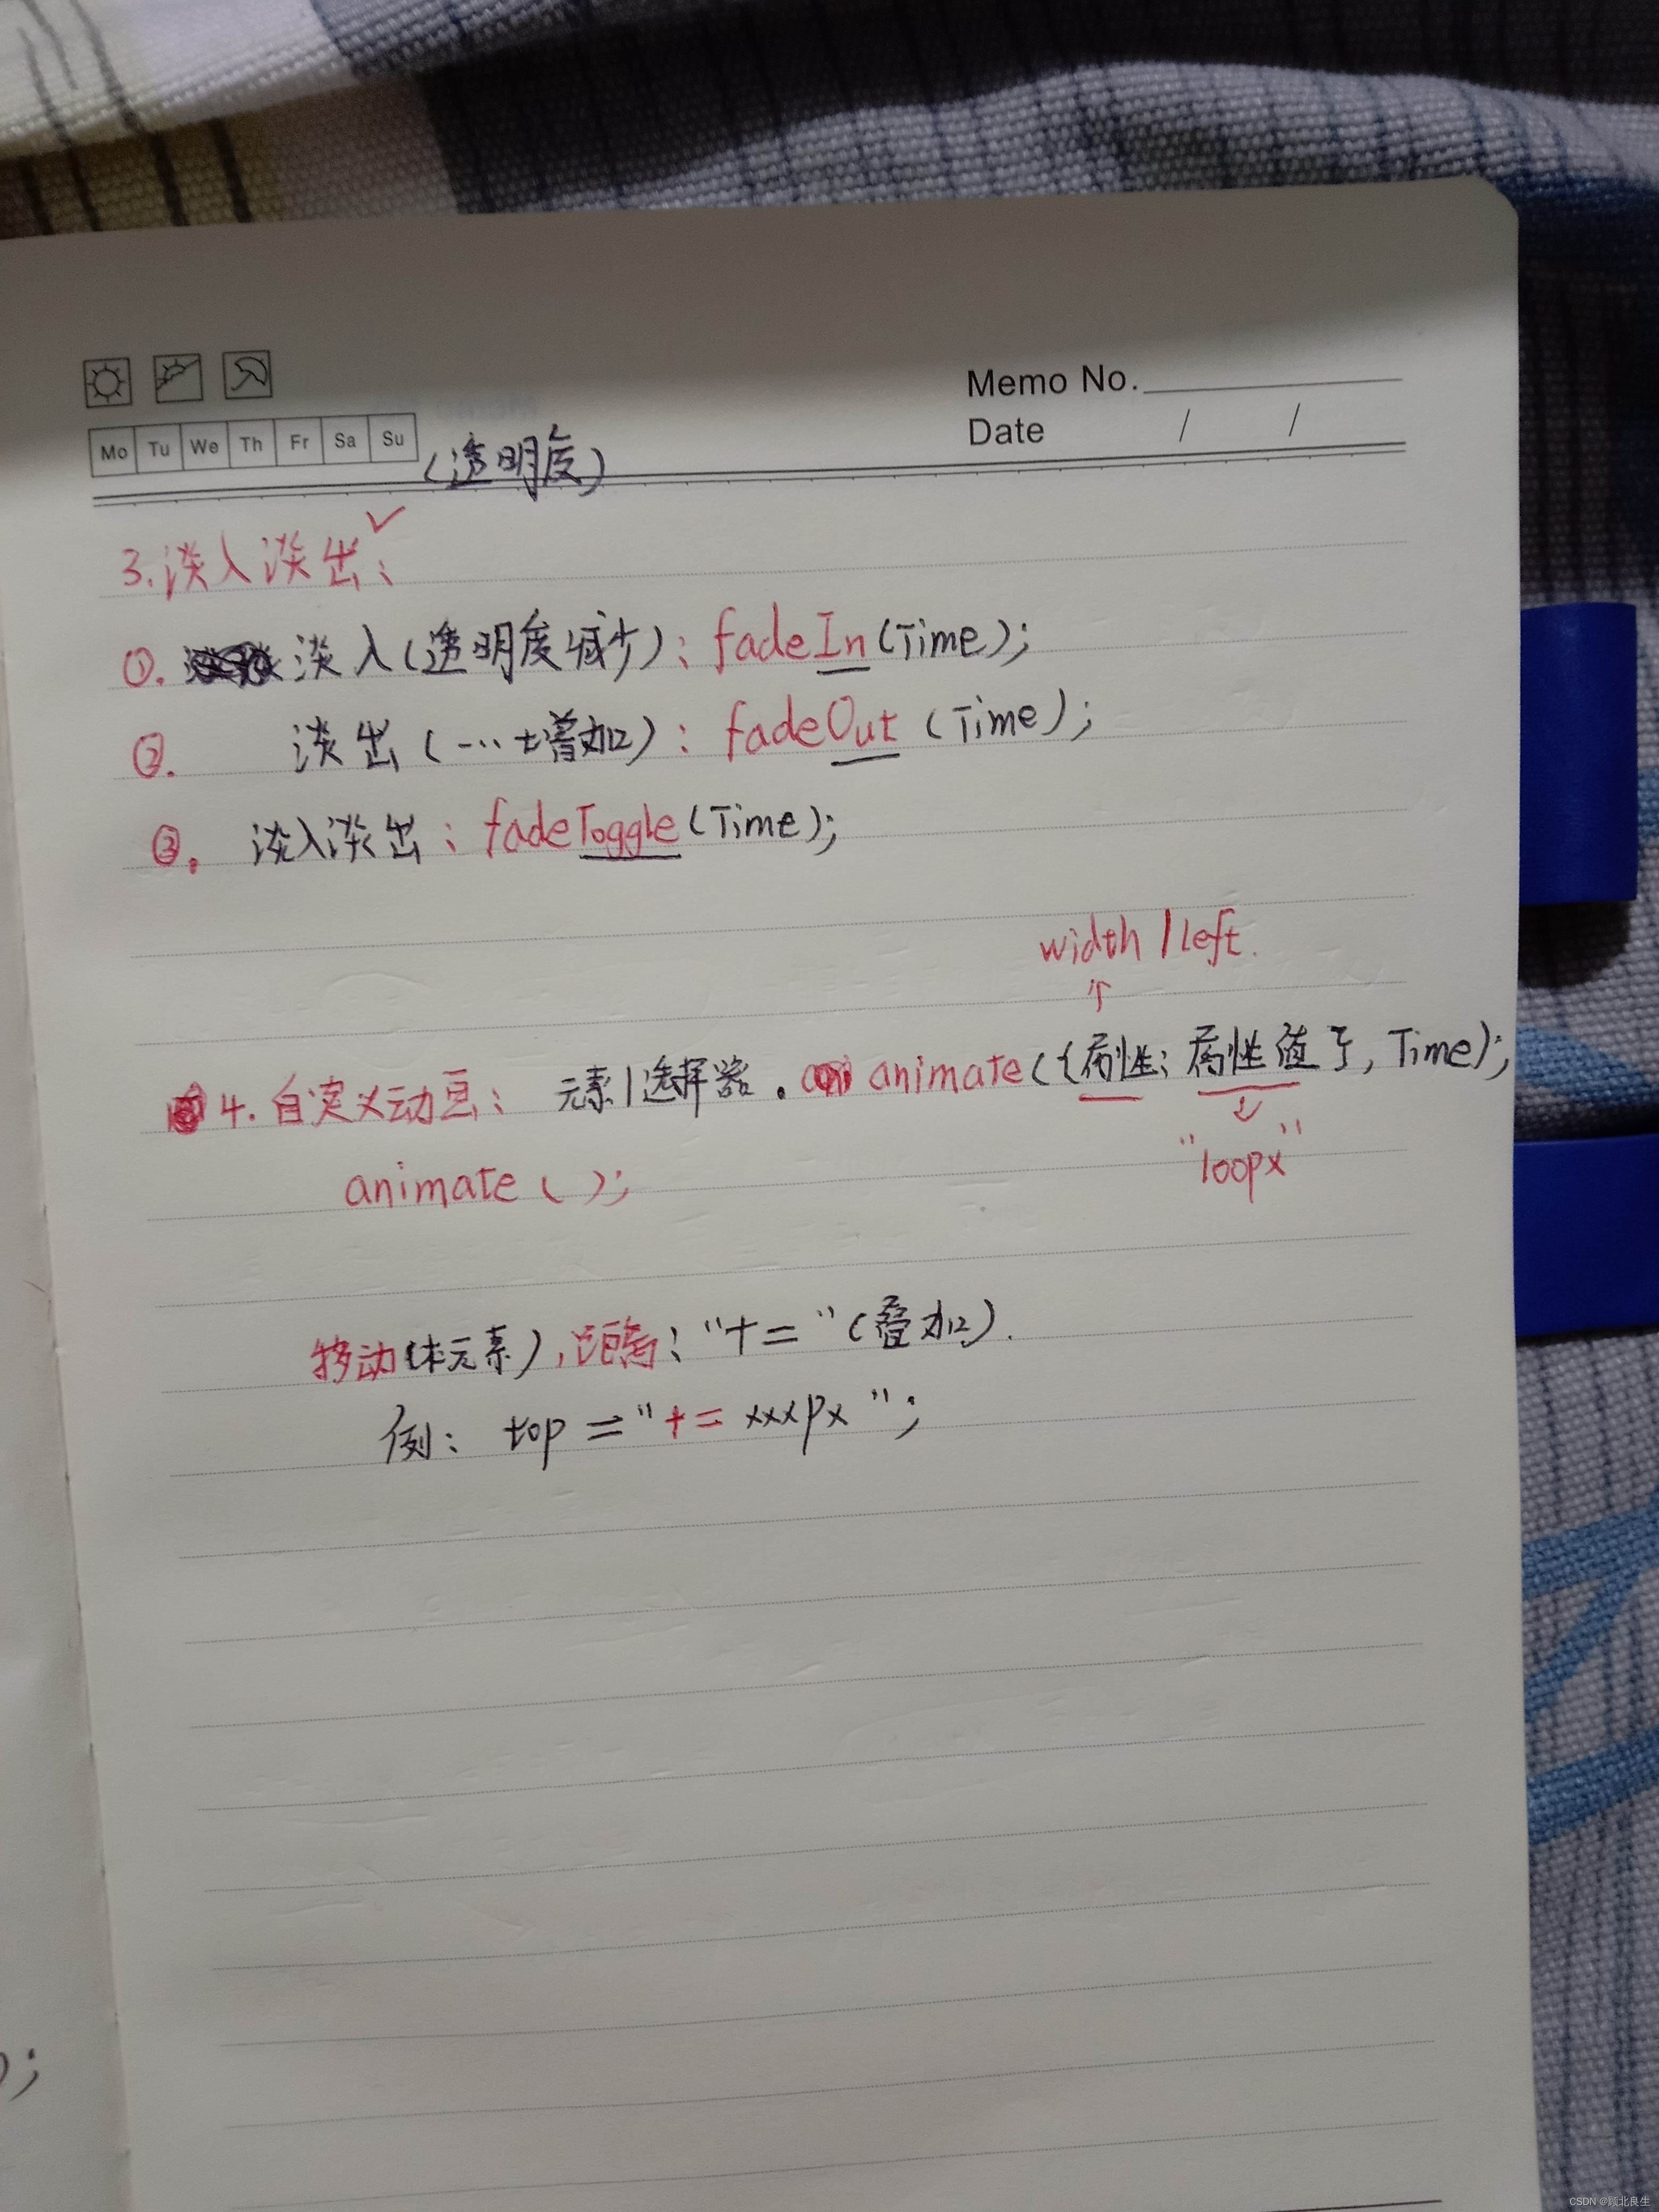 Memo No.
Date / /
Mo Tu We Th Fr Sa Su
(透明度)
3.淡入淡出:
①. 淡入(透明度减少): fadeIn(Time);
②. 淡出(...增加): fadeOut (Time);
③. 淡入淡出: fadeToggle(Time);
width / left.
4. 自定义动画: 元素/选择器. animate({属性: 属性值}, Time);
"100px"
animate ( );
移动(本元素),距离: "+="(叠加).
例: top ="+= xxxpx ";
);
CSDN @顾北良生